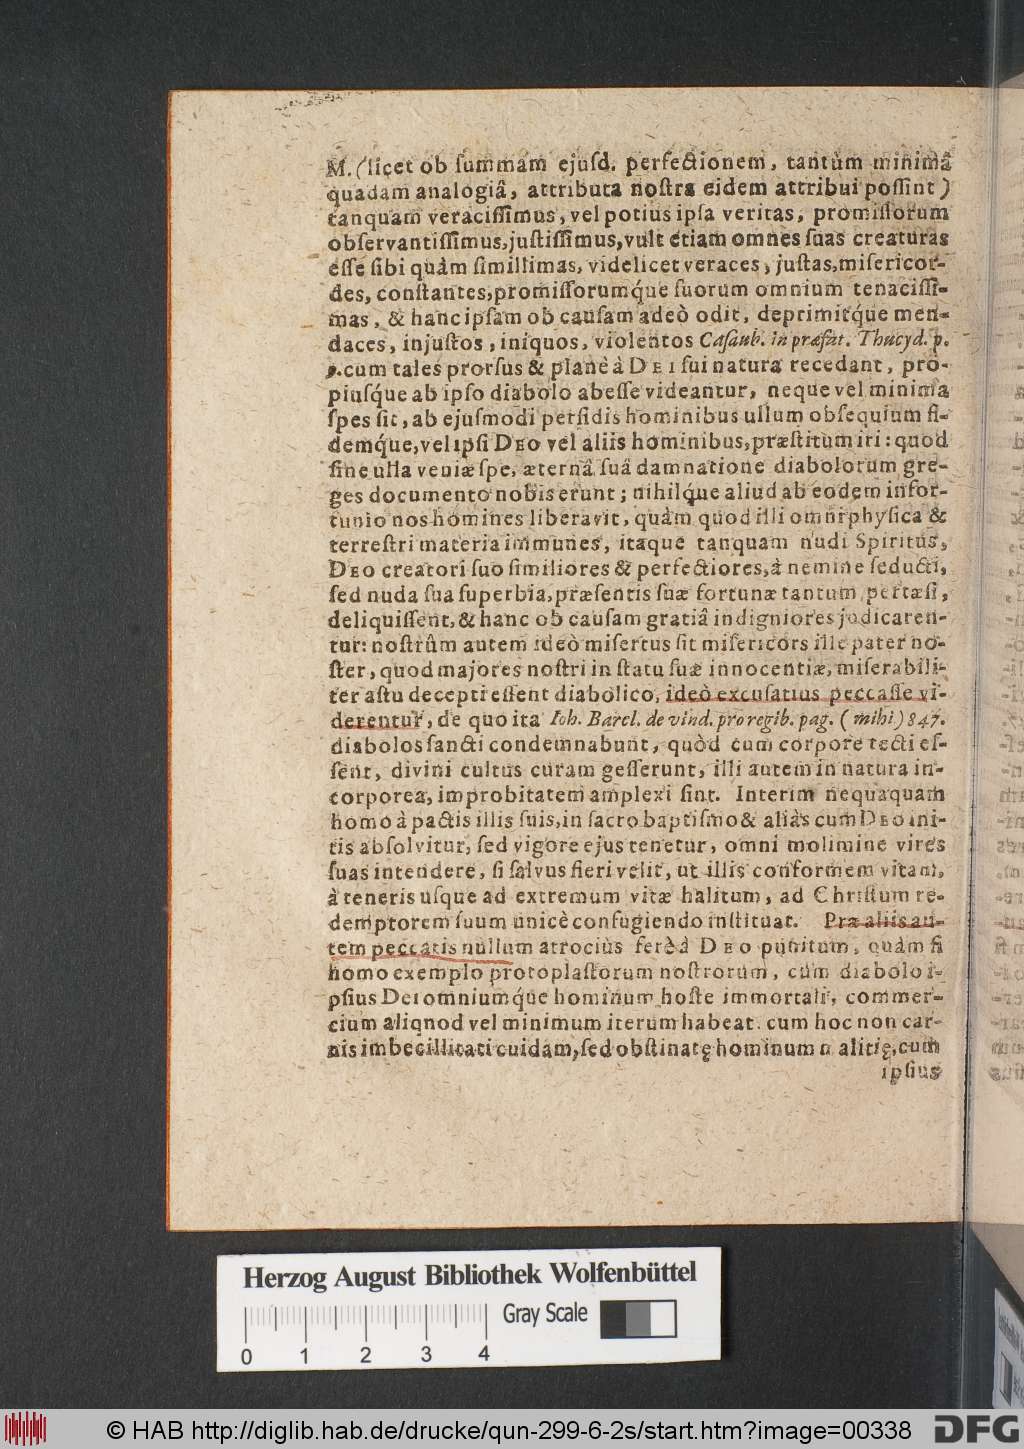 M. (licet ob ſummam ejuſd. perfectionem, tantùm minimâ
quadam analogiâ, attributa noſtra eidem attribui poſſint)
tanquam veraciſſimus, vel potius ipſa veritas, promiſſorum
obſervantiſſimus, juſtiſſimus, vult etiam omnes ſuas creaturas
eſſe ſibi quàm ſimillimas, videlicet veraces, juſtas, miſericor-
des, conſtantes, promiſſorumq́ue ſuorum omnium tenaciſſi-
mas, & hanc ipſam ob cauſam adeò odit, deprimitq́ue men-
daces, injuſtos, iniquos, violentos Caſaub. in præfat. Thucyd. p.
9. cum tales prorſus & planè à DEI ſui natura recedant, prò-
piuſq́ue ab ipſo diabolo abeſſe videantur, neque vel minima
ſpes ſit, ab ejuſmodi perfidis hominibus ullum obſequium fi-
demq́ue, vel ipſi DEO vel aliis hominibus, præſtitum iri: quod
ſine ulla veniæ ſpe, æternâ ſuâ damnatione diabolorum gre-
ges documento nobis erunt; nihilq́ue aliud ab eodem infor-
tunio nos homines liberavit, quàm quod illi omni phyſica &
terreſtri materia immunes, itaque tanquam nudi Spiritus,
DEO creatori ſuo ſimiliores & perfectiores, à nemine ſeducti,
ſed nuda ſua ſuperbia, præſentis ſuæ fortunæ tantum pertæſi,
deliquiſſent, & hanc ob cauſam gratiâ indigniores judicaren-
tur: noſtrûm autem ideò miſertus ſit miſericors ille pater no-
ſter, quod majores noſtri in ſtatu ſuæ innocentiæ, miſerabili-
ter aſtu decepti eſſent diabolico, ideò excuſatius peccaſſe vi-
derentur, de quo ita Ioh. Barcl. de vind. pro regib. pag. (mihi) 847.
diabolos ſancti condemnabunt, quòd cum corpore tecti eſ-
ſent, divini cultus curam geſſerunt, illi autem in natura in-
corporea, improbitatem amplexi ſint. Interim nequaquam
homo à pactis illis ſuis, in ſacro baptiſmo & aliàs cum DEO ini-
tis abſolvitur, ſed vigore ejus tenetur, omni molimine vires
ſuas intendere, ſi ſalvus fieri velit, ut illis conformem vitam,
à teneris uſque ad extremum vitæ halitum, ad Chriſtum re-
demptorem ſuum unicè confugiendo inſtituat. Præ aliis au-
tem peccatis nullum atrociùs ferè à DEO punitum, quàm ſi
homo exemplo protoplaſtorum noſtrorum, cum diabolo i-
pſius DEI omniumq́ue hominum hoſte immortali, commer-
cium aliqnod vel minimum iterum habeat. cum hoc non car-
nis imbecillitati cuidam, ſed obſtinatę hominum malitię, cum
ipſius
Herzog August Bibliothek Wolfenbüttel
Gray Scale
0 1 2 3 4
© HAB http://diglib.hab.de/drucke/qun-299-6-2s/start.htm?image=00338
DFG